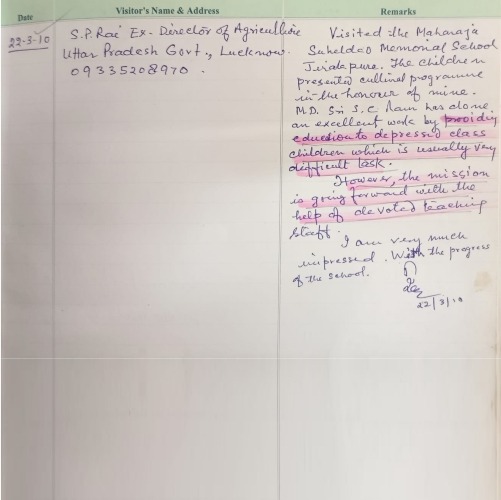 Date
Visitor's Name & Address
Remarks
22-3-10
S.P. Rai Ex. Director of Agriculture
Uttar Pradesh Govt., Lucknow.
09335208970.
Visited the Maharaja
Suheldao Memorial School
The Children
presented cultural programme
in the honour of mine.
M.D. Sri S.C. Ram has done
an excellent work by providing
education to depressed class
children which is usually very
difficult task.
However, the mission
is going forward with the
help of devoted teaching
staff.
I am very much
impressed. With the progress
of the school.
22/3/10